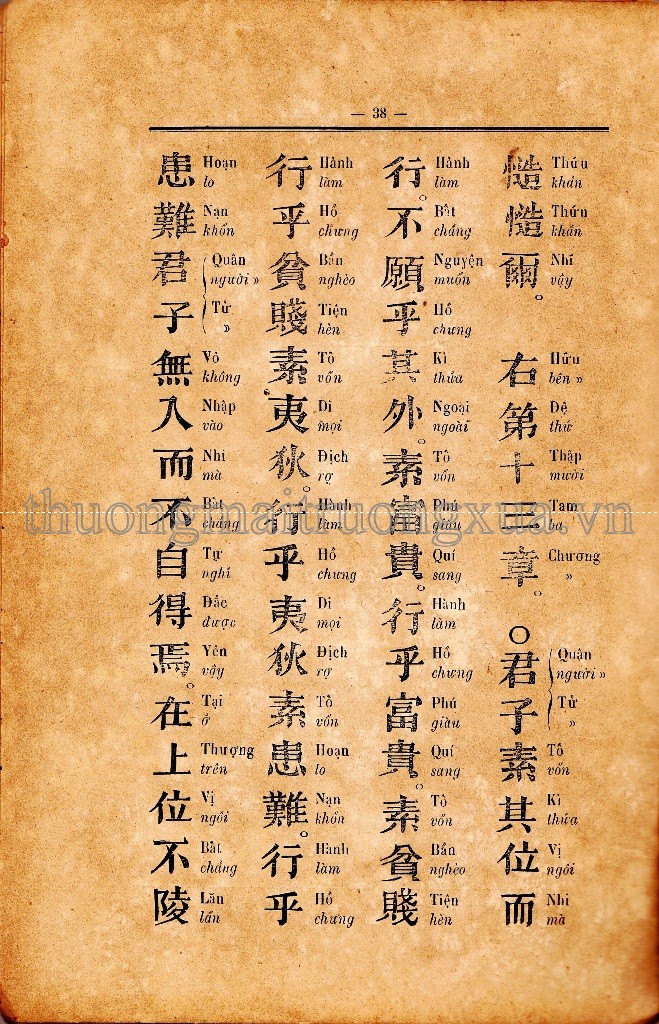 — 38 —
慥慥爾。右第十三章。○君子素其位而
Thứu
khẩn
Thứu
khẩn
Nhí
vậy
Hữu
bên »
Đệ
thứ
Thập
mười
Tam
ba
Chương
»
Quân
người »
Tử
»
Tố
vốn
Kì
thửa
Vị
ngôi
Nhi
mà
行。不願乎其外。素富貴。行乎富貴。素貧賤
Hành
làm
Bất
chẳng
Nguyện
muốn
Hồ
chưng
Kì
thửa
Ngoại
ngoài
Tố
vốn
Phú
giàu
Quí
sang
Hành
làm
Hồ
chưng
Phú
giàu
Quí
sang
Tố
vốn
Bần
nghèo
Tiện
hèn
行乎貧賤素夷狄行乎夷狄素患難。行乎
Hành
làm
Hồ
chưng
Bần
nghèo
Tiện
hèn
Tố
vốn
Di
mọi
Địch
rợ
Hành
làm
Hồ
chưng
Di
mọi
Địch
rợ
Tố
vốn
Hoạn
lo
Nạn
khốn
Hành
làm
Hồ
chưng
患難君子無入而不自得焉。在上位不陵
Hoạn
lo
Nạn
khốn
Quân
người »
Tử
»
Vô
không
Nhập
vào
Nhi
mà
Bất
chẳng
Tự
nghĩ
Đắc
được
Yên
vậy
Tại
ở
Thượng
trên
Vị
ngôi
Bất
chẳng
Lăn
lấn
thuongmaitruongxua.vn